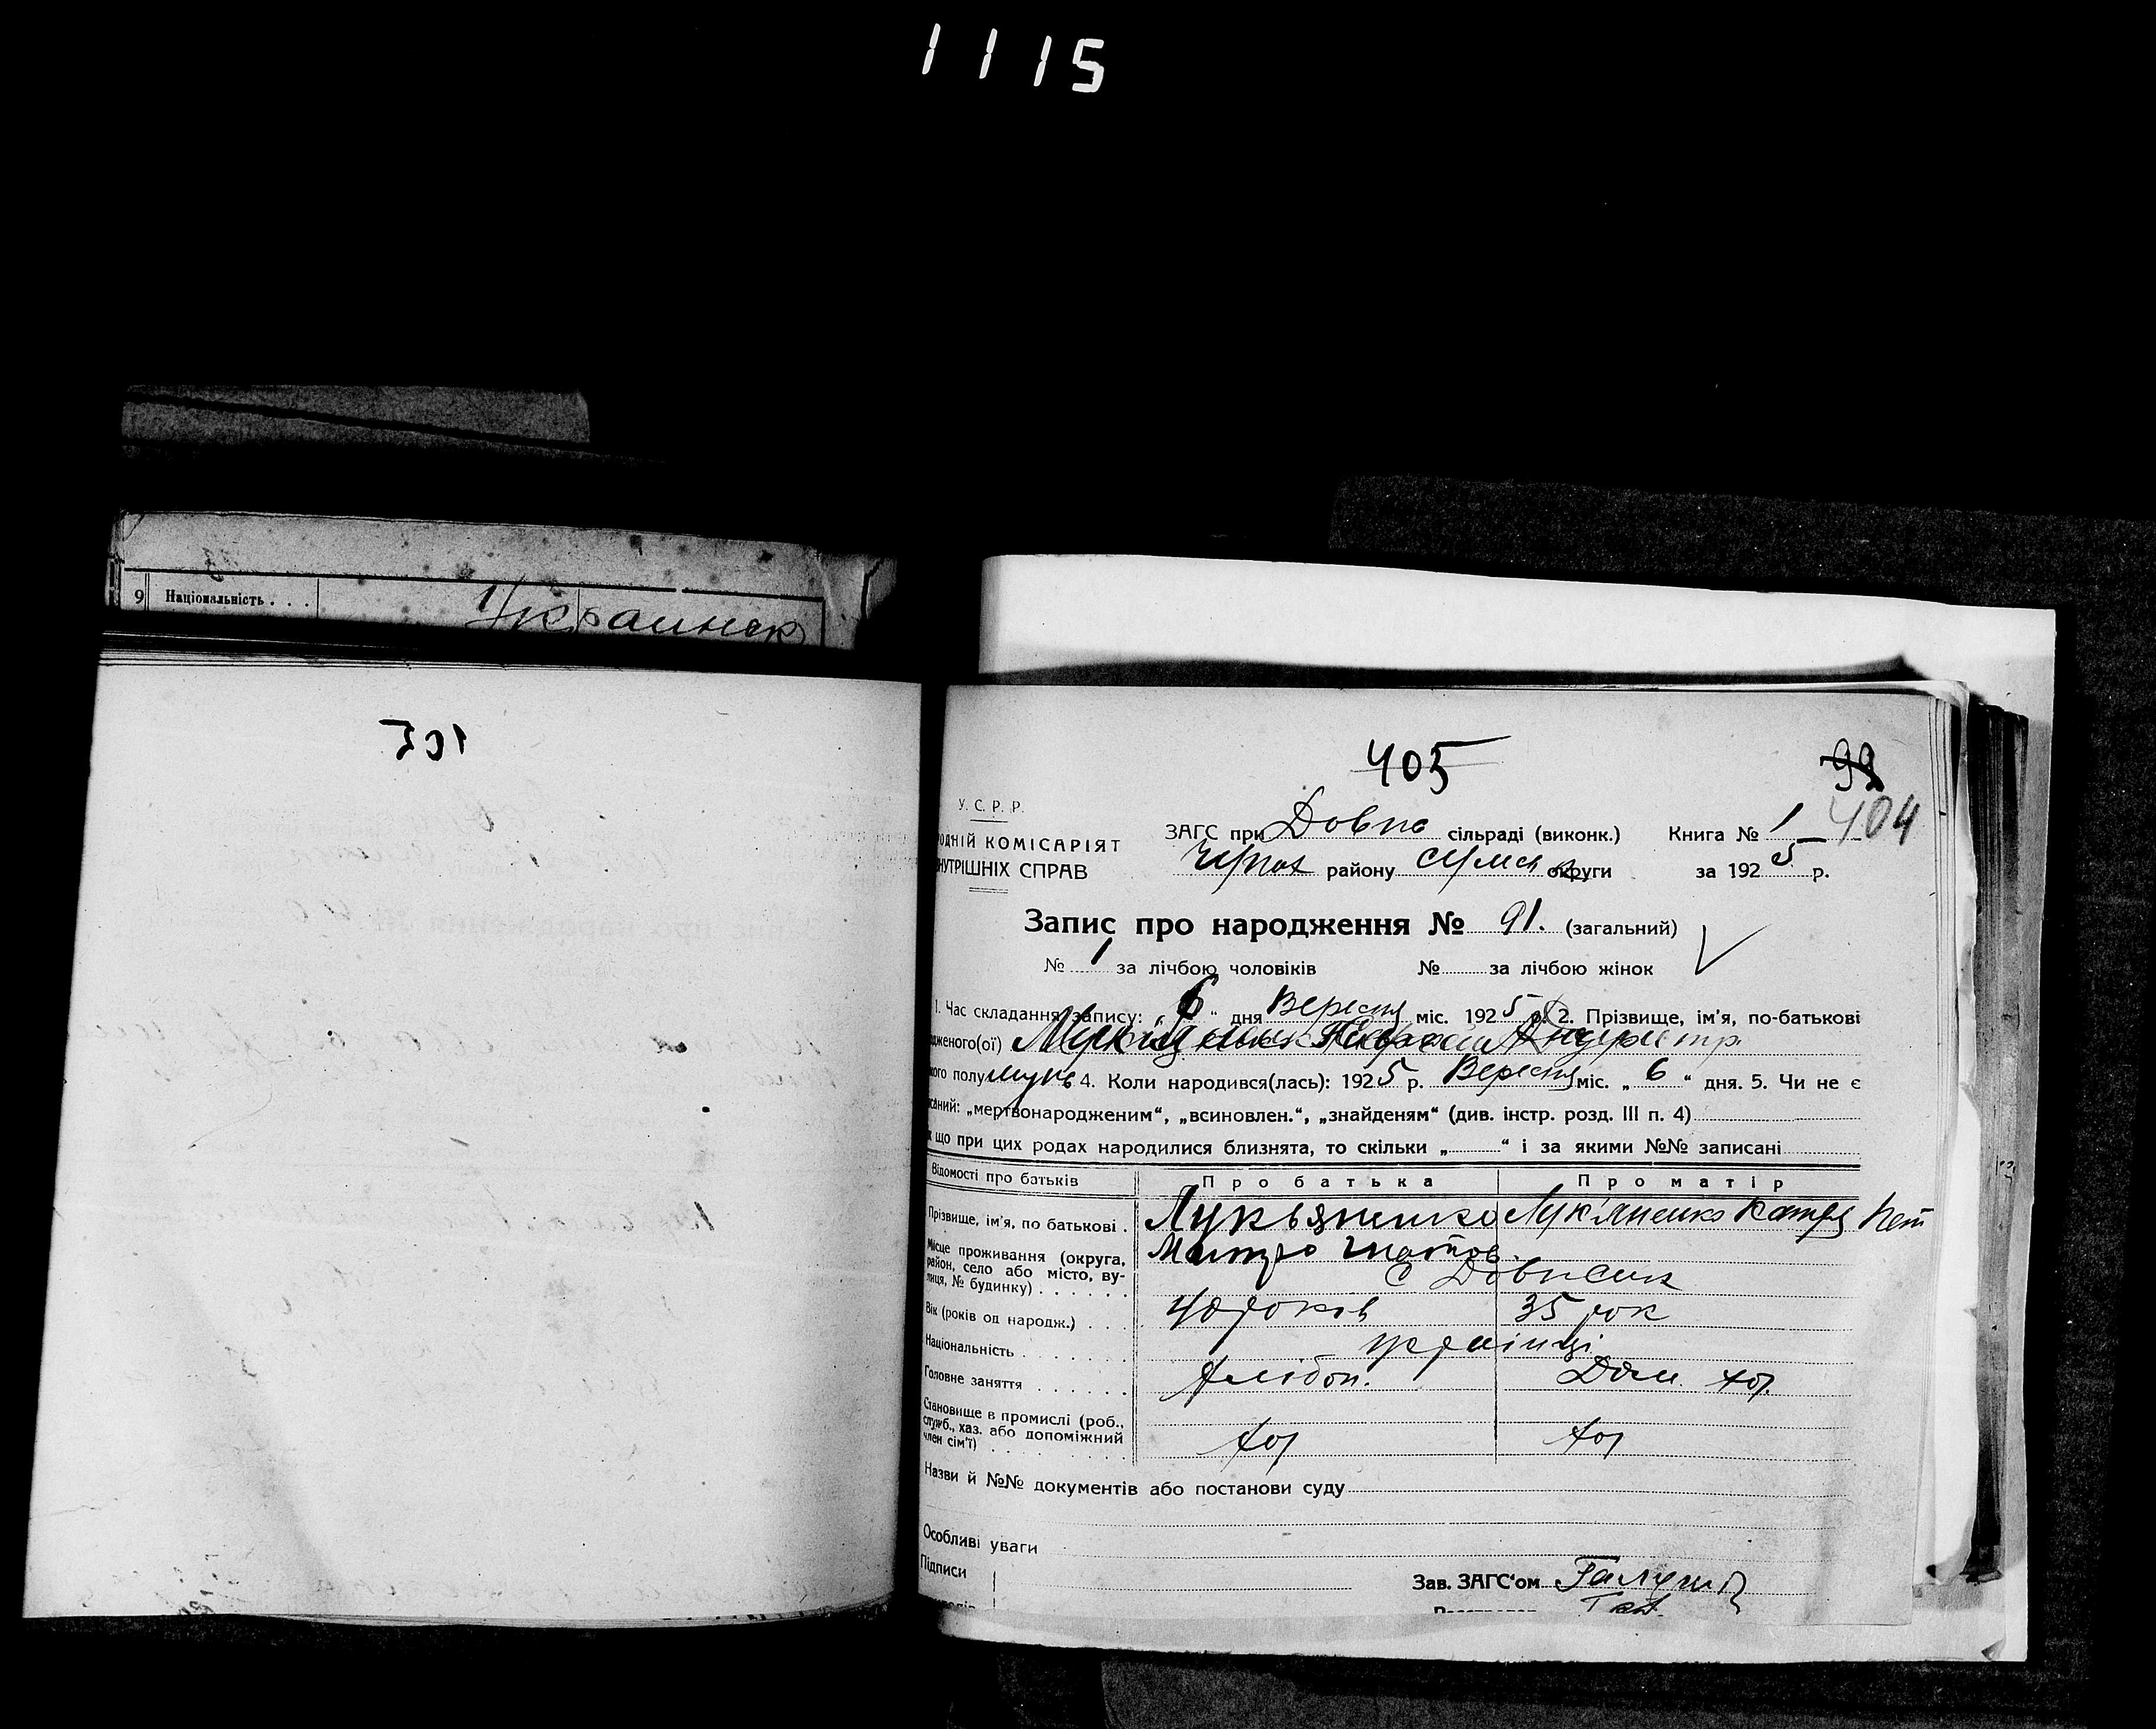 1115
9 Національність . . .
Украинск
405
99
404
У. С. Р. Р.
ОДНІЙ КОМІСАРІЯТ
НУТРІШНІХ СПРАВ
ЗАГС при сільраді (виконк.) Книга № 1
району Сумськ округи за 1925 р.
Запис про народження № 91. (загальний)
№ 1 за лічбою чоловіків № за лічбою жінок
1. Час складання запису: „6“ дня Вересня міс. 1925 р. 2. Прізвище, ім'я, по-батькові
дженого(ої)
ого полу 4. Коли народився(лась): 1925 р. Вересня міс. „6“ дня. 5. Чи не є
саний: „мертвонародженим“, „всиновлен.“, „знайденям“ (див. інстр. розд. III п. 4)
що при цих родах народилися близнята, то скільки „ “ і за якими №№ записані
Відомості про батьків Про батька Про матір
Прізвище, ім'я, по батькові . Лукьяненко Лук'яненко Катря Пет
Митро
Місце проживання (округа,
район, село або місто, ву-
лиця, № будинку) . . . . . .
Вік (років од народж.) . . . 40 років 35 рок
Національність . . . . . . . українці
Головне заняття . . . . . . хлібоп. Дом. хоз.
Становище в промислі (роб.,
служб., хаз. або допоміжний
член сім'ї) . . . . хоз хоз
Назви й №№ документів або постанови суду
Особливі уваги
Підписи
Зав. ЗАГС'ом